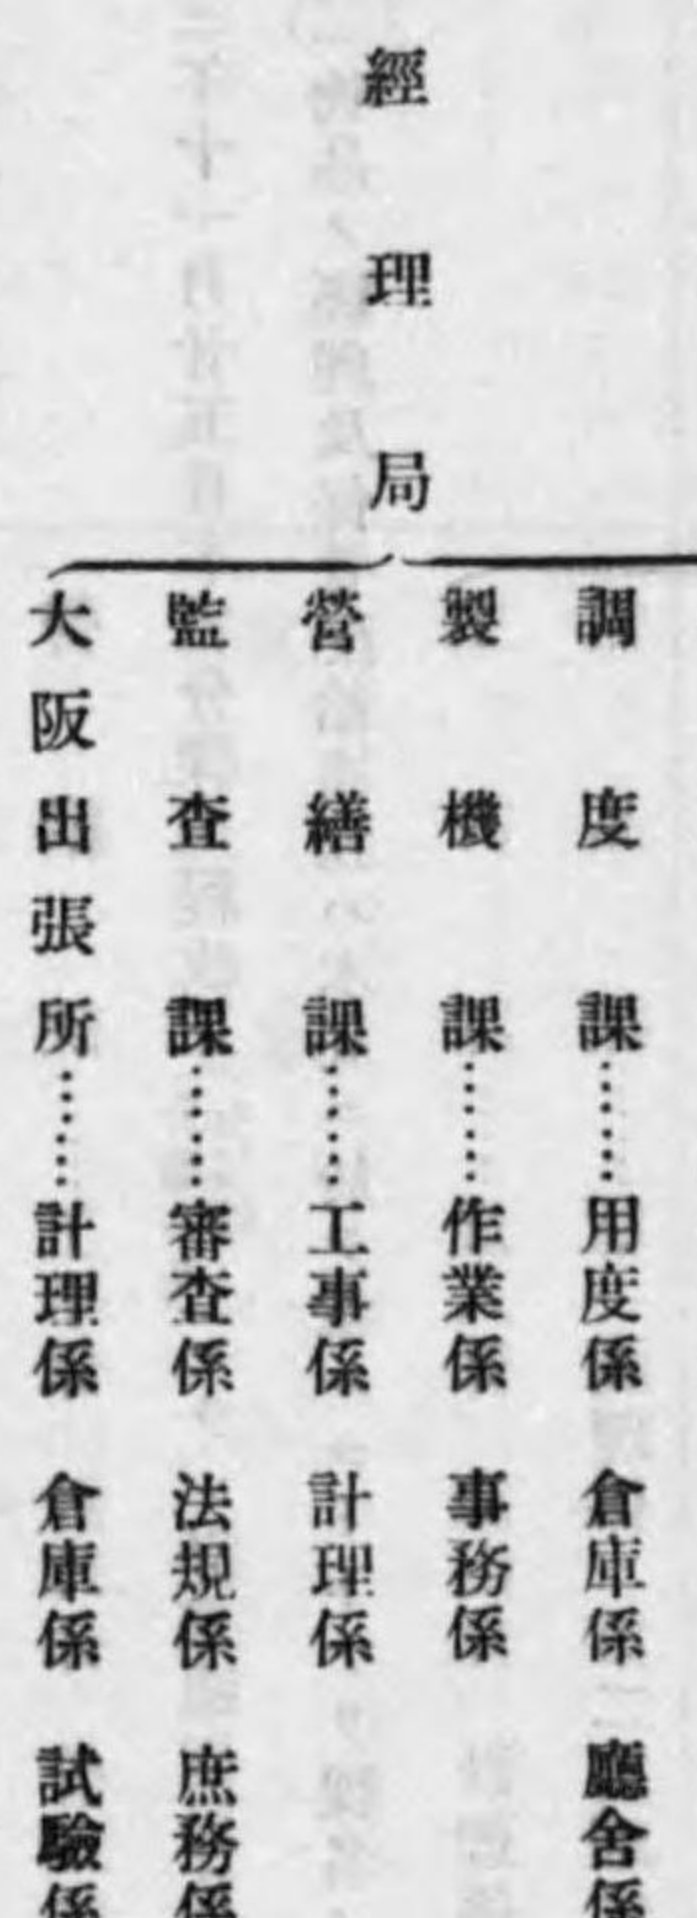 經理局
調度課……用度係 倉庫係 廳舍係
製機課……作業係 事務係
營繕課……工事係 計理係
監査課……審査係 法規係 庶務係
大阪出張所……計理係 倉庫係 試驗係